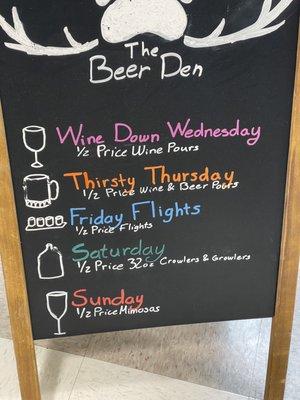 The
Beer Den
Wine Down Wednesday
1/2 Price Wine Pours
Thirsty Thursday
1/2 Price Wine & Beer Pours
Friday Flights
1/2 Price Flights
Saturday
1/2 Price 32oz Crowlers & Growlers
Sunday
1/2 Price Mimosas